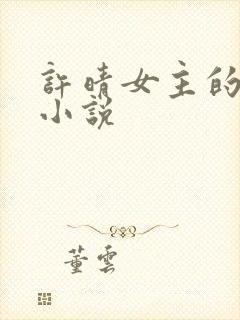 許晴女主的
小說
董雲